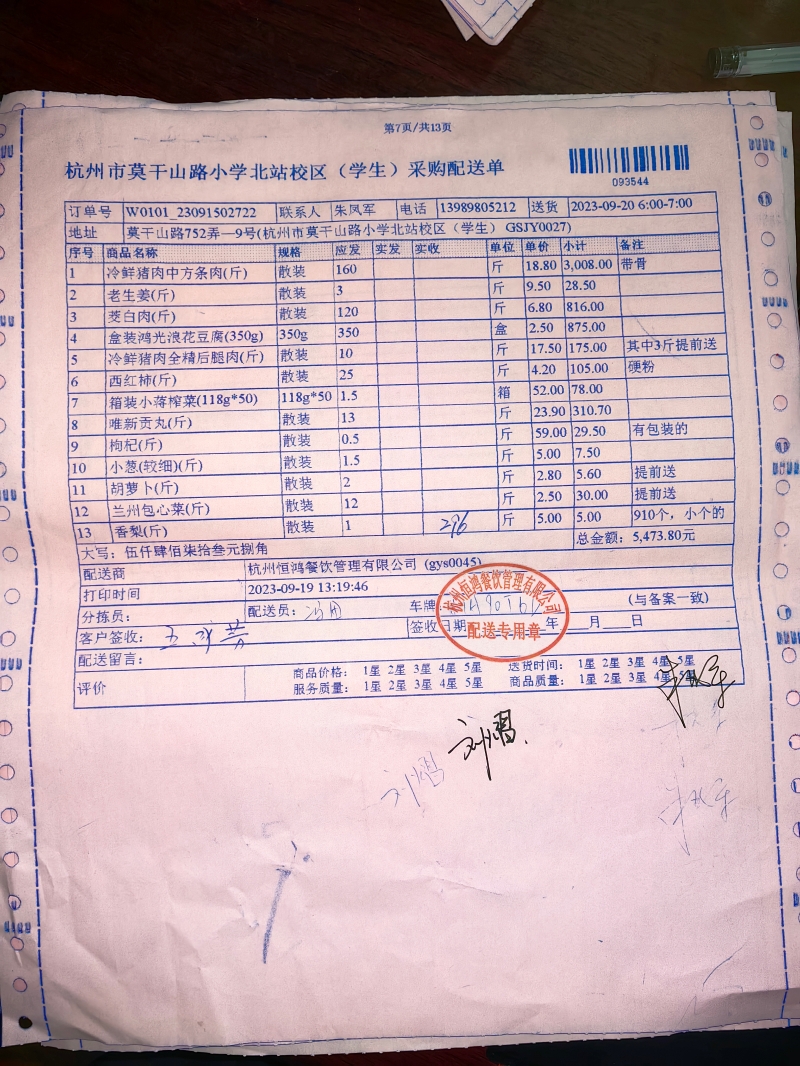 第7页/共13页
杭州市莫干山路小学北站校区（学生）采购配送单
093544
订单号 W0101_23091502722 联系人 朱凤军 电话 13989805212 送货 2023-09-20 6:00-7:00
地址 莫干山路752弄一9号(杭州市莫干山路小学北站校区（学生） GSJY0027)
序号 商品名称 规格 应发 实发 实收 单位 单价 小计 备注
1 冷鲜猪肉中方条肉(斤) 散装 160 斤 18.80 3,008.00 带骨
2 老生姜(斤) 散装 3 斤 9.50 28.50
3 茭白肉(斤) 散装 120 斤 6.80 816.00
4 盒装鸿光浪花豆腐(350g) 350g 350 盒 2.50 875.00
5 冷鲜猪肉全精后腿肉(斤) 散装 10 斤 17.50 175.00 其中3斤提前送
6 西红柿(斤) 散装 25 斤 4.20 105.00 硬粉
7 箱装小薄榨菜(118g*50) 118g*50 1.5 箱 52.00 78.00
8 唯新贡丸(斤) 散装 13 斤 23.90 310.70
9 枸杞(斤) 散装 0.5 斤 59.00 29.50 有包装的
10 小葱(较细)(斤) 散装 1.5 斤 5.00 7.50
11 胡萝卜(斤) 散装 2 斤 2.80 5.60 提前送
12 兰州包心菜(斤) 散装 12 斤 2.50 30.00 提前送
13 香梨(斤) 散装 1 296 斤 5.00 5.00 910个，小个的
大写：伍仟肆佰柒拾叁元捌角 总金额：5,473.80元
配送商 杭州恒鸿餐饮管理有限公司 (gys0045)
打印时间 2023-09-19 13:19:46
分拣员： 配送员： 车牌 (与备案一致)
客户签收： 签收日期 年 月 日
杭州恒鸿餐饮管理有限公司
配送专用章
配送留言：
评价 商品价格： 1星 2星 3星 4星 5星 送货时间： 1星 2星 3星 4星 5星
服务质量： 1星 2星 3星 4星 5星 商品质量： 1星 2星 3星 4星 5星